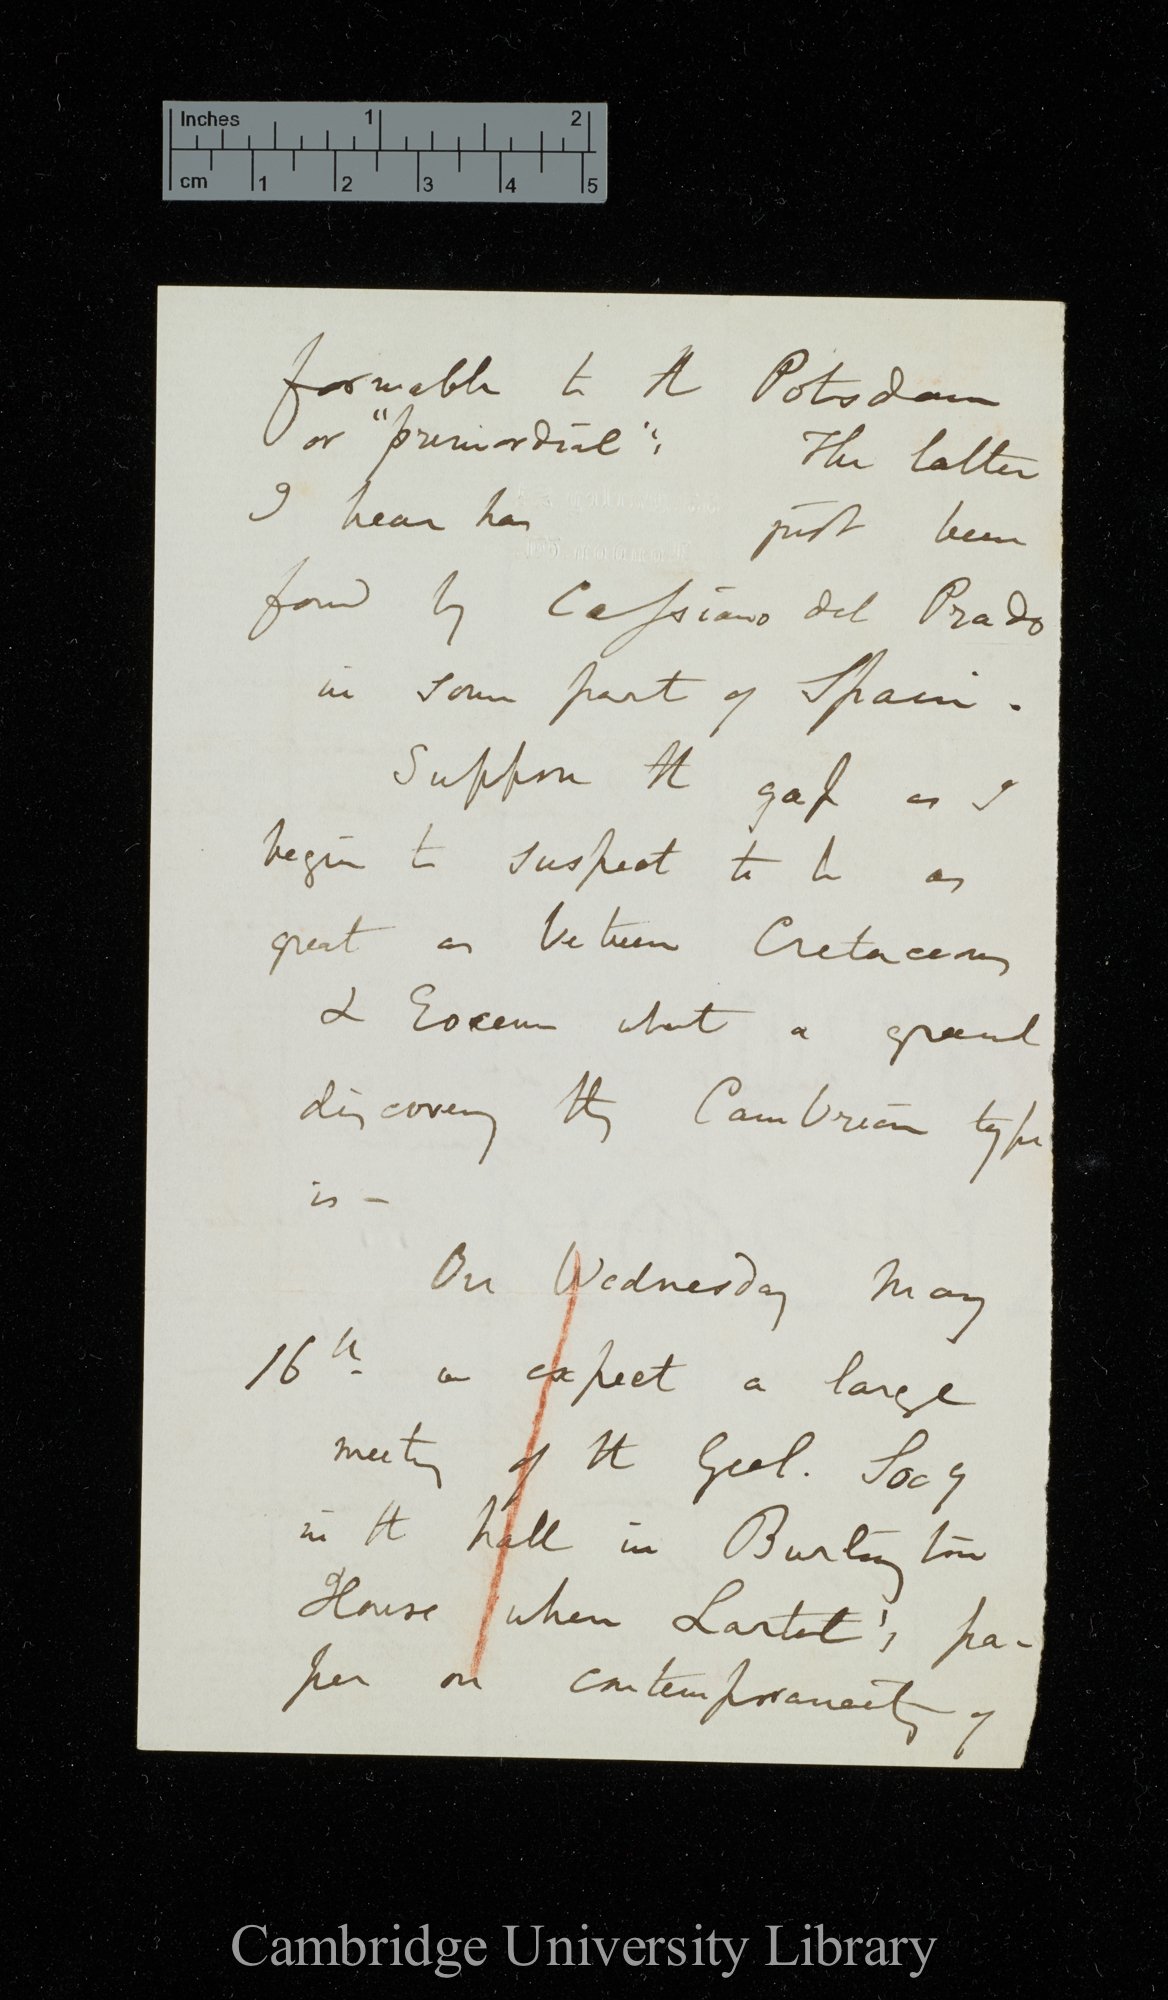 Inches 1 2
cm 1 2 3 4 5
formable to the Potsdam
or "primordial". The latter
I hear has just been
found by Cassiano del Prado
in some part of Spain.
Suppose the gap as I
begin to suspect to be as
great as between Cretaceous
& Eocene what a grand
discovery this Cambrian type
is —
On Wednesday May
16th. we expect a large
meeting of the Geol. Socy
in the hall in Burlington
House when Lartet's pa-
per on contemporaneity of
Cambridge University Library